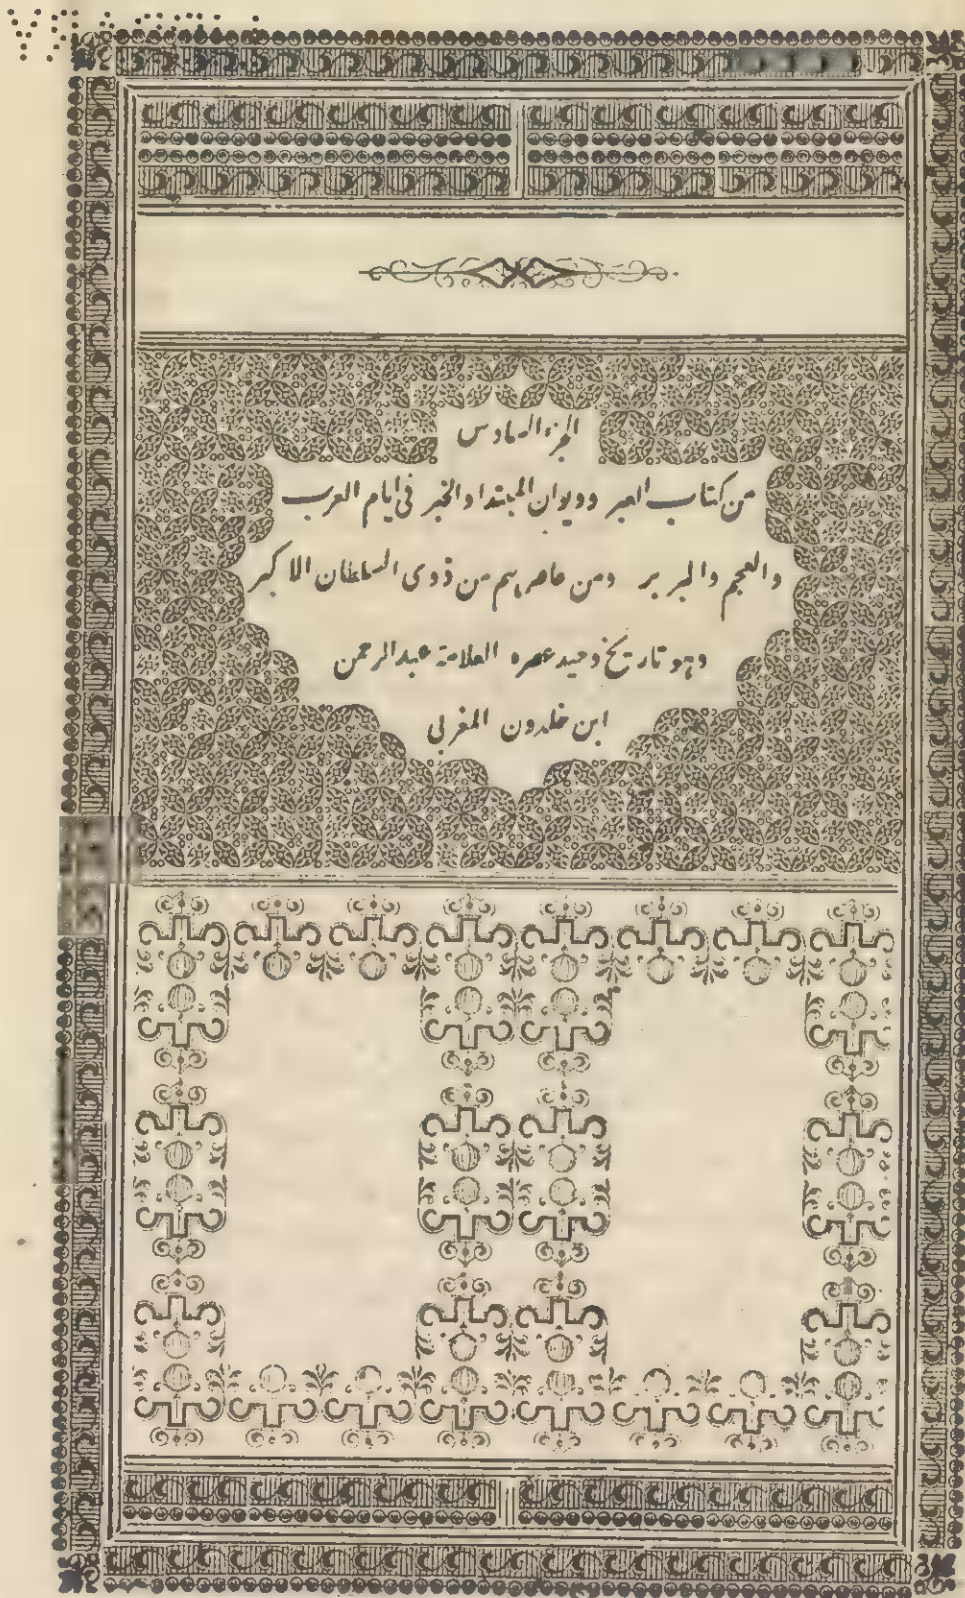 الجزء السادس
من كتاب العبر وديوان المبتدا والخبر فى ايام العرب
والعجم والبربر ومن عاصرهم من ذوى السلطان الاكبر
وهو تاريخ وحيد عصره العلامة عبد الرحمن
ابن خلدون المغربى